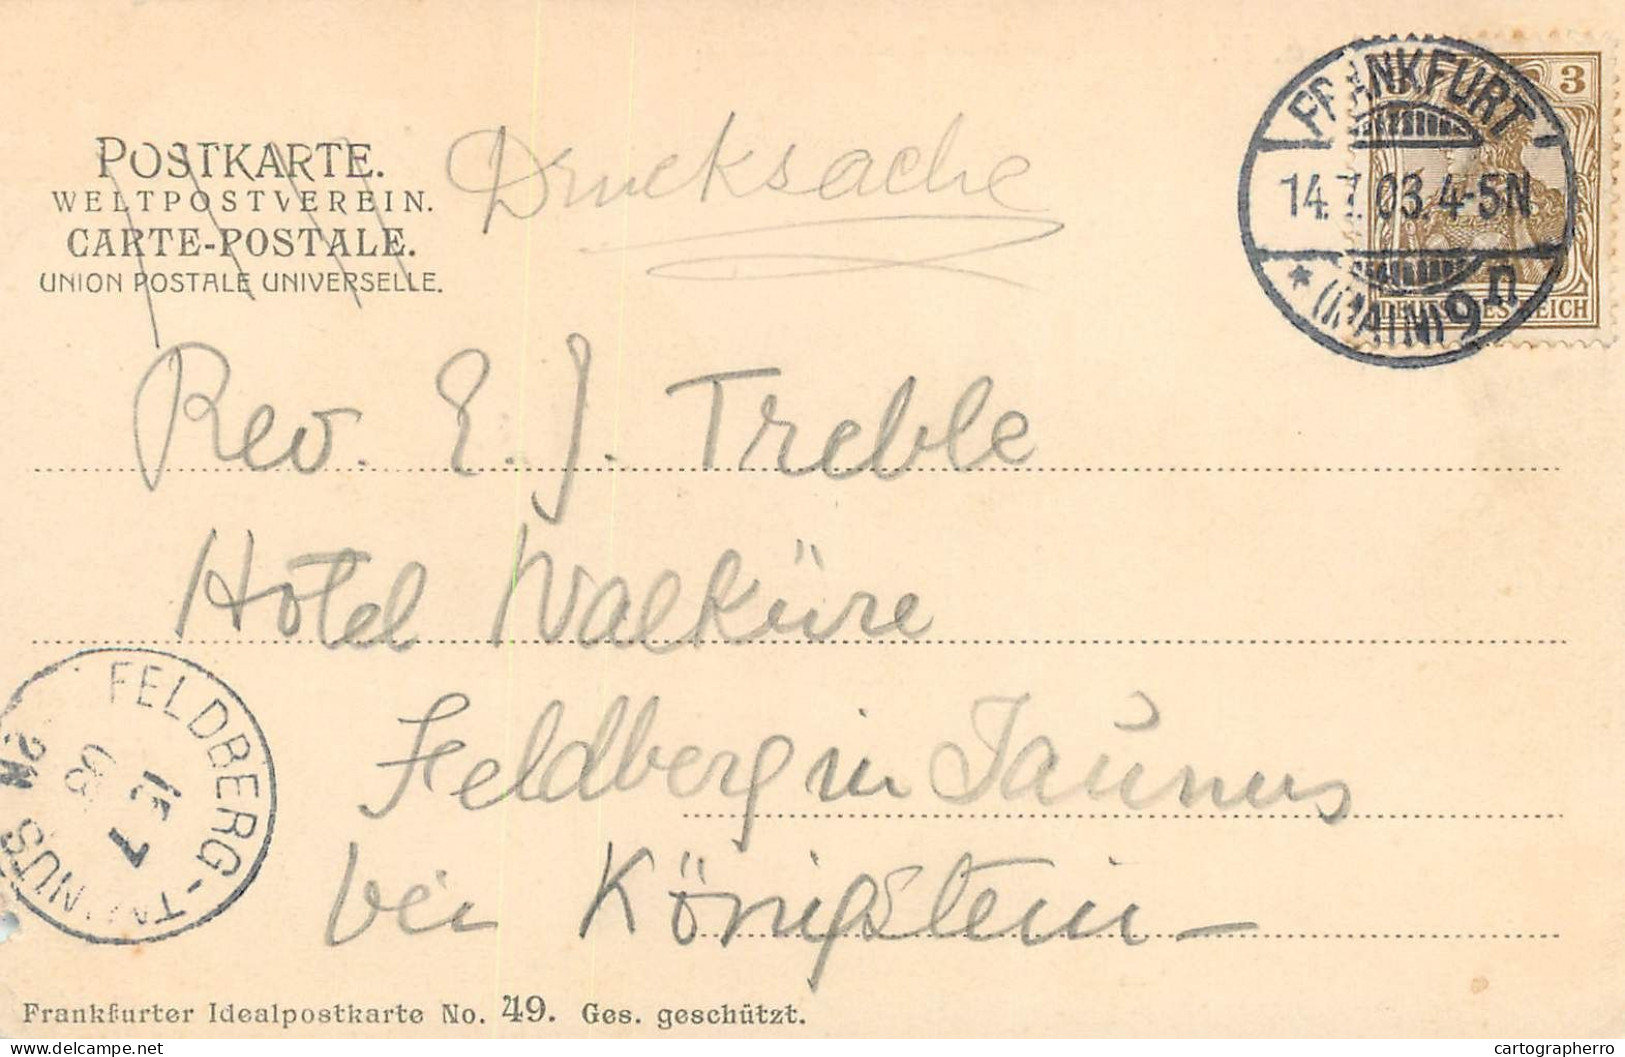 POSTKARTE.
WELTPOSTVEREIN.
CARTE-POSTALE.
UNION POSTALE UNIVERSELLE.
Drucksache
FRANKFURT
14.7.03.4-5N
* (MAIN) 9 n
3
DEUTSCHES REICH
Rev. E. J. Treble
Hotel Walküre
Feldberg in Taŭnus
bei Königstein
FELDBERG-TAUNUS
15 7
03
2N
Frankfurter Idealpostkarte No. 49. Ges. geschützt.
www.delcampe.net
cartographerro